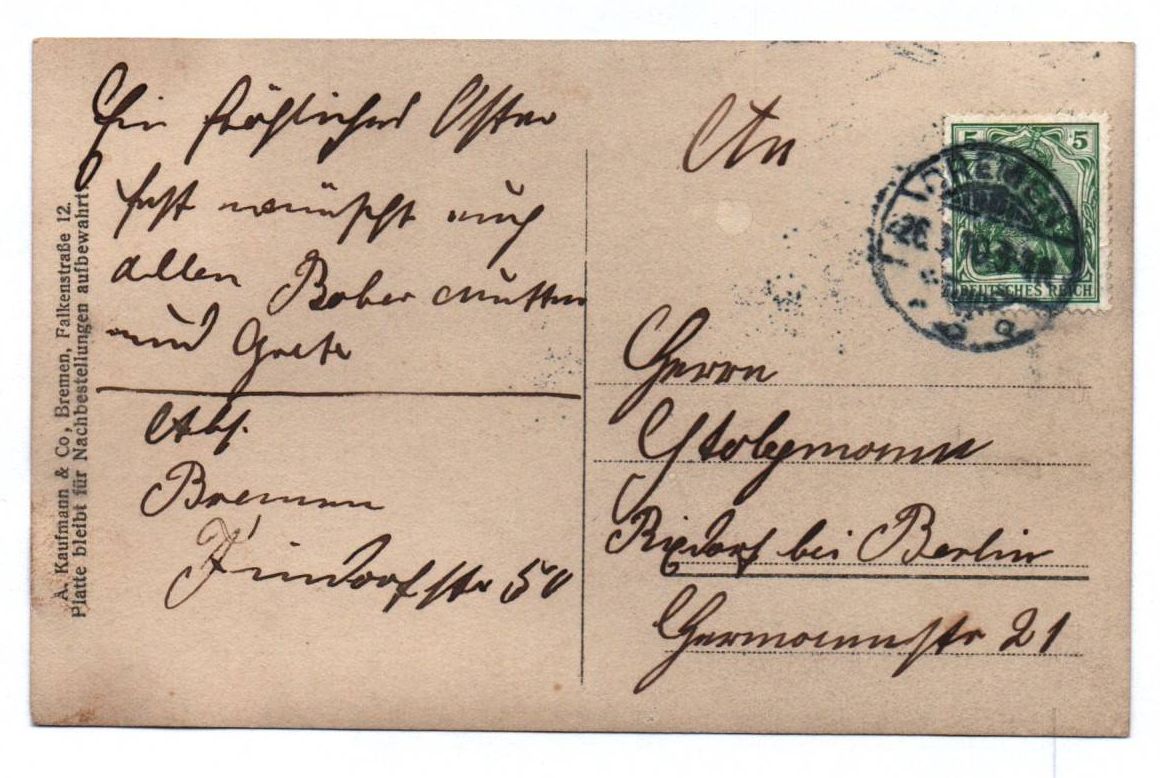 Ein fröhliches Oster
fest wünscht euch
allen Bober Mutter
und Grete
Abs.
Bremen
Findorfstr 50
A. Kaufmann & Co, Bremen, Falkenstraße 12.
Platte bleibt für Nachbestellungen aufbewahrt.
An
5 5
DEUTSCHES REICH
BREMEN
26.3.10.
Herrn
Rixdorf bei Berlin
Hermannstr 21